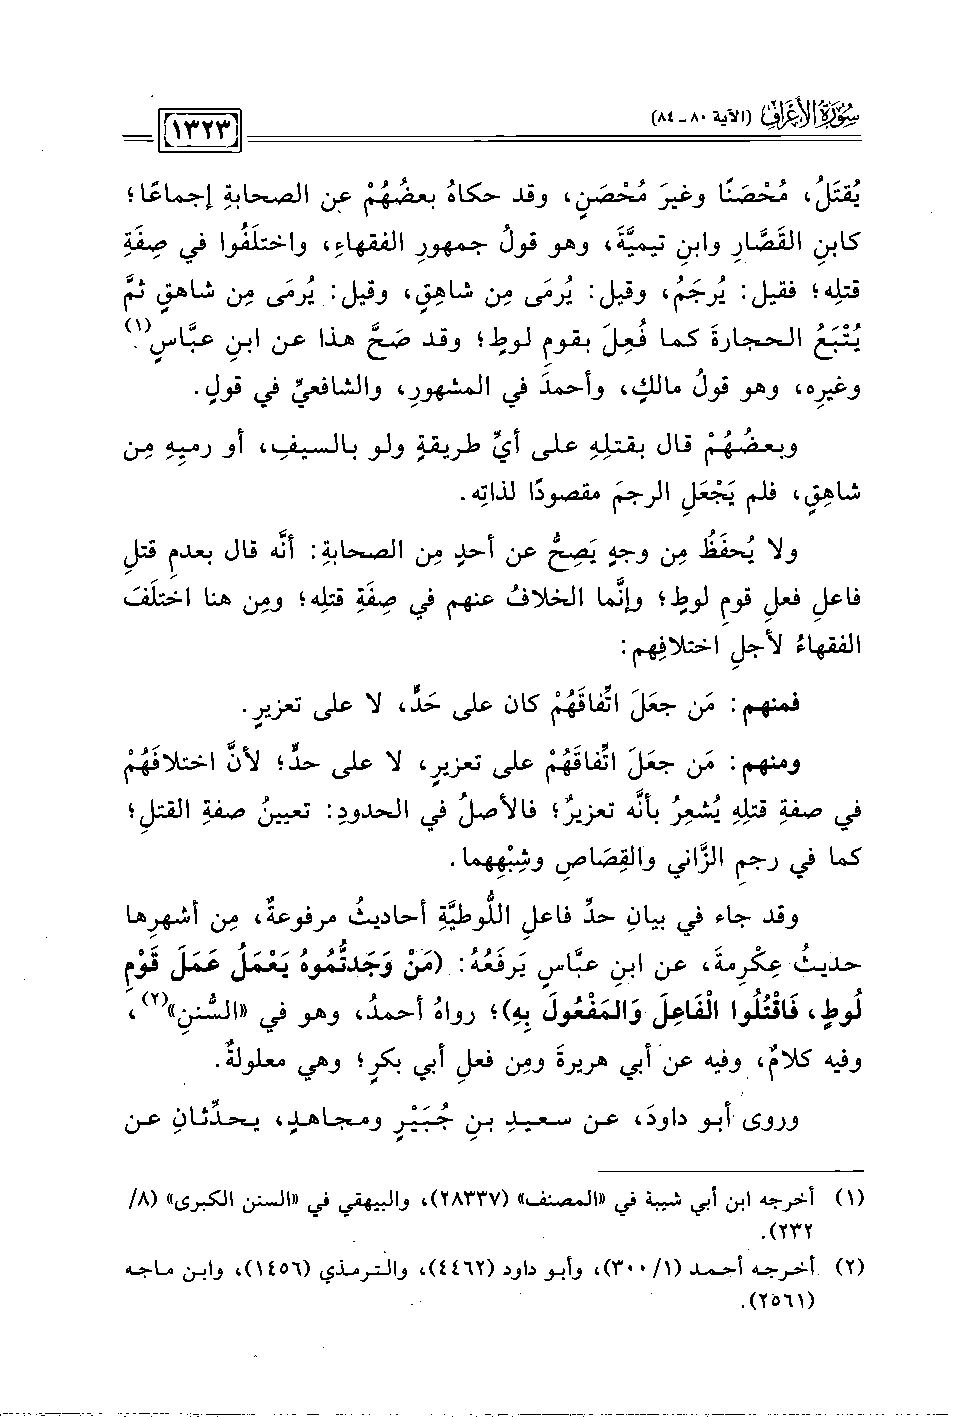 سورة الأعراف (الآية ٨٠ ـ ٨٤)
١٣٢٣
يُقتَلُ، مُحْصَنًا وغيرَ مُحْصَنٍ، وقد حكاهُ بعضُهُمْ عن الصحابةِ إجماعًا؛
كابنِ القَصَّارِ وابنِ تيميَّةَ، وهو قولُ جمهورِ الفقهاءِ، واختلَفُوا في صِفَةِ
قتلِه؛ فقيل: يُرجَمُ، وقيل: يُرمَى مِن شاهقٍ، وقيل: يُرمَى مِن شاهقٍ ثمَّ
يُتْبَعُ الحجارةَ كما فُعِلَ بقومِ لوطٍ؛ وقد صَحَّ هذا عن ابنِ عبَّاسٍ(١)
وغيرِه، وهو قولُ مالكٍ، وأحمدَ في المشهورِ، والشافعيِّ في قولٍ.
وبعضُهُمْ قال بقتلِهِ على أيِّ طريقةٍ ولو بالسيفِ، أو رميِهِ مِن
شاهِقٍ، فلم يَجْعَلِ الرجمَ مقصودًا لذاتِه.
ولا يُحفَظُ مِن وجهٍ يَصِحُّ عن أحدٍ مِن الصحابةِ: أنَّه قال بعدمِ قتلِ
فاعلِ فعلِ قومِ لوطٍ؛ وإنَّما الخلافُ عنهم في صِفَةِ قتلِه؛ ومِن هنا اختَلَفَ
الفقهاءُ لأجلِ اختلافِهم:
فمنهم: مَن جعَلَ اتِّفاقَهُمْ كان على حَدٍّ، لا على تعزيرٍ.
ومنهم: مَن جعَلَ اتِّفاقَهُمْ على تعزيرٍ، لا على حدٍّ؛ لأنَّ اختلافَهُمْ
في صفةِ قتلِهِ يُشعِرُ بأنَّه تعزيرٌ؛ فالأصلُ في الحدودِ: تعيينُ صفةِ القتلِ؛
كما في رجمِ الزَّاني والقِصَاصِ وشِبْهِهما.
وقد جاء في بيانِ حدِّ فاعلِ اللُّوطيَّةِ أحاديثُ مرفوعةٌ، مِن أشهرِها
حديثُ عِكْرِمةَ، عن ابنِ عبَّاسٍ يَرفَعُهُ: (مَنْ وَجَدتُّمُوهُ يَعْمَلُ عَمَلَ قَوْمِ
لُوطٍ، فَاقْتُلُوا الْفَاعِلَ وَالمَفْعُولَ بِهِ)؛ رواهُ أحمدُ، وهو في «السُّننِ»(٢)،
وفيه كلامٌ، وفيه عن أبي هريرةَ ومِن فعلِ أبي بكرٍ؛ وهي معلولةٌ.
وروى أبو داودَ، عن سعيدِ بنِ جُبَيْرٍ ومجاهدٍ، يحدِّثانِ عن
(١) أخرجه ابن أبي شيبة في «المصنف» (٢٨٣٣٧)، والبيهقي في «السنن الكبرى» (٨/
٢٣٢).
(٢) أخرجه أحمد (١/ ٣٠٠)، وأبو داود (٤٤٦٢)، والترمذي (١٤٥٦)، وابن ماجه
(٢٥٦١).